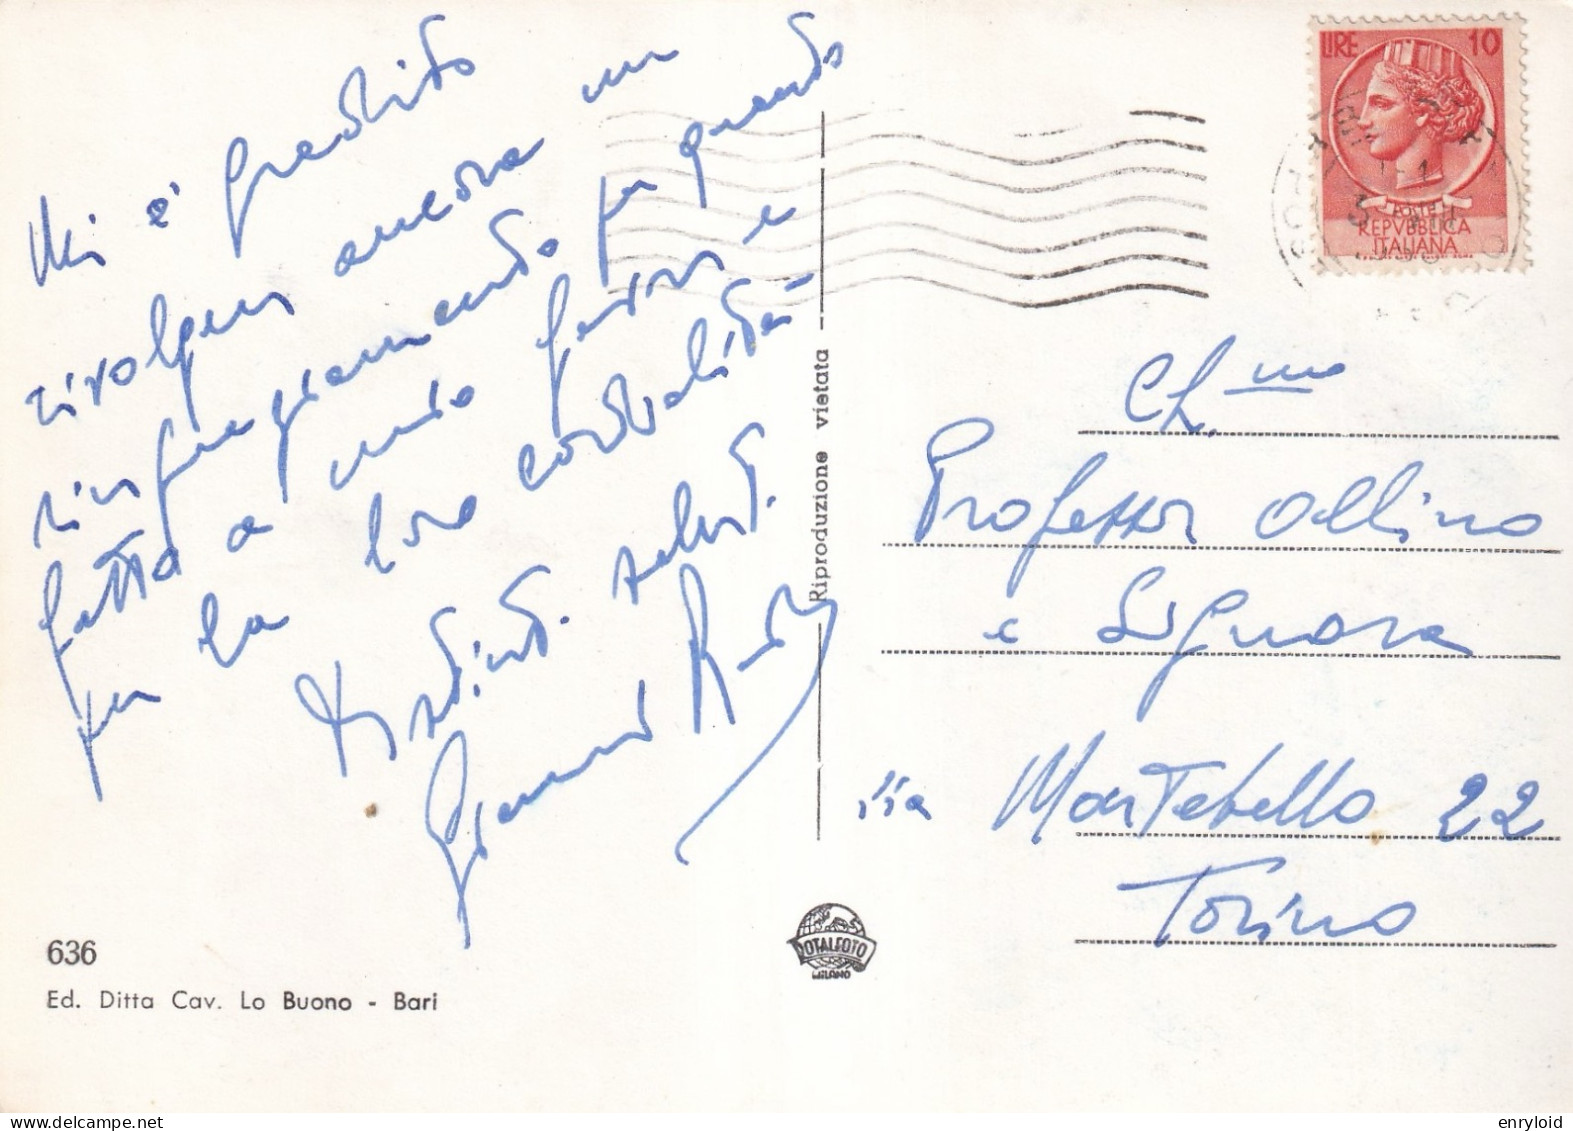 Mi è gradito
rivolgere ancora un
ringraziamento per quanto
fatto a mio favore e
per la loro cordialità
Distinti saluti.
LIRE 10
REPVBBLICA
ITALIANA
Riproduzione vietata
Ch.mo
Professor Ollino
e Signora
Via Montebello 22
Torino
636
Ed. Ditta Cav. Lo Buono - Bari
ROTALFOTO
MILANO
enryloid